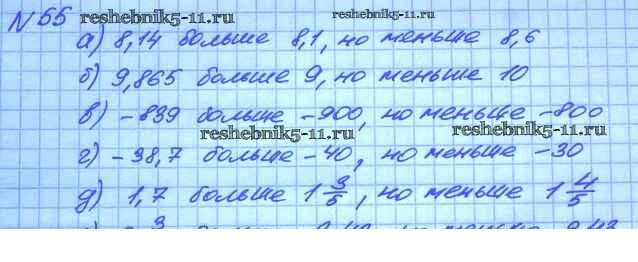 N 55 reshebnik5-11.ru reshebnik5-11.ru
а) 8,14 больше 8,1, но меньше 8,6
б) 9,865 больше 9, но меньше 10
в) -839 больше -900, но меньше -800
reshebnik5-11.ru reshebnik5-11.ru
г) -38,7 больше -40, но меньше -30
д) 1,7 больше 1 3/5, но меньше 1 4/5